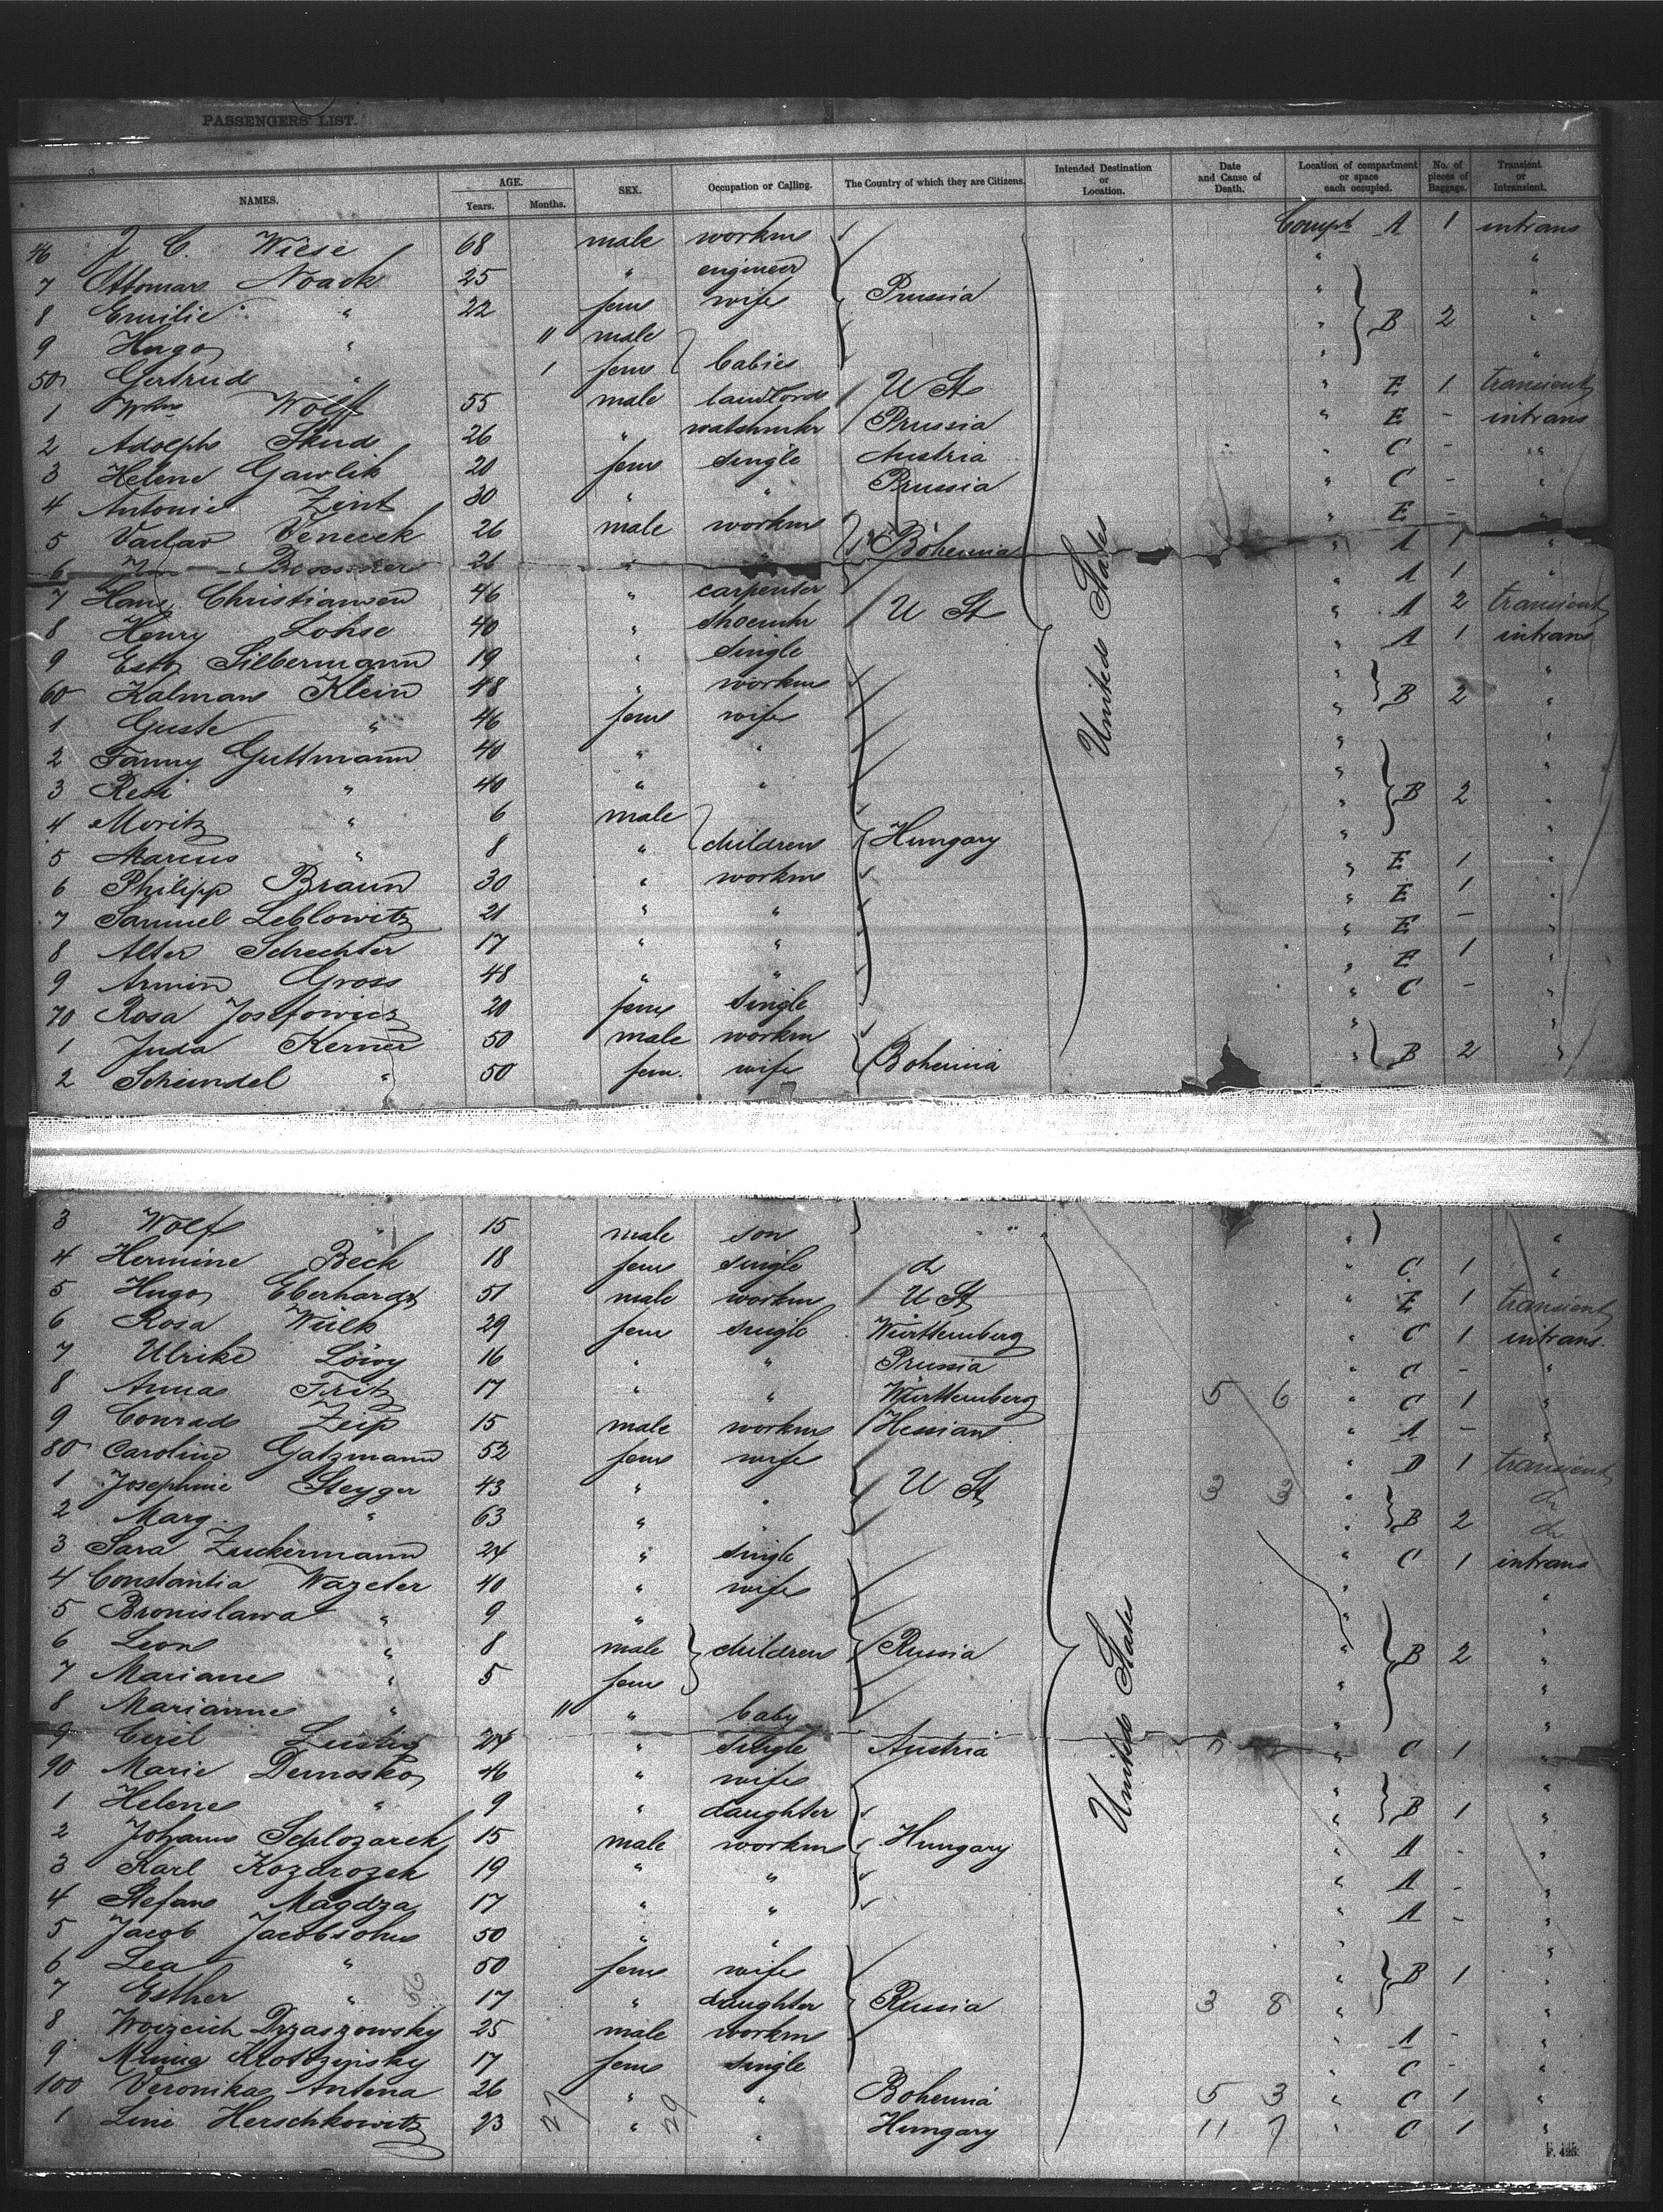 PASSENGERS' LIST.
NAMES. AGE. Years. Months. SEX. Occupation or Calling. The Country of which they are Citizens. Intended Destination or Location. Date and Cause of Death. Location of compartment or space each occupied. No. of pieces of Baggage. Transient or Intransient.
46 J. C. Wiese 68 male workm Compt A 1 intrans
7 Ottomar Noack 25 " engineer " "
8 Emilie " 22 fem wife Prussia " "
9 Hugo " 11 male " B 2 "
50 Gertrud " 1 fem babies " "
1 Wm Wolff 55 male landlord U St " E 1 transient
2 Adolph Skud 26 " watchmkr Prussia " E - intrans
3 Helene Gawlik 20 fem single Austria " C - "
4 Antonie Zint 30 " " Prussia " C - "
5 Vaclav 26 male workm Bohemia " E - "
6 26 " " " A 1 "
7 Hans Christiansen 46 " carpenter U St " A 1 "
8 Henry Lohse 40 " shoemkr " A 2 transient
9 Silbermann 19 " single " A 1 intrans
60 Kalman Klein 48 " workm " B 2 "
1 Guste " 46 fem wife " "
2 Fanny Guttmann 40 " " " "
3 Resi " 40 " " " B 2 "
4 Moritz " 6 male " "
5 Marcus " 8 " children Hungary " "
6 Philipp Braun 30 " workm " E 1 "
7 Samuel Leblowitz 21 " " " E 1 "
8 Alter Schechter 17 " " " E - "
9 Armin Gross 48 " " " E 1 "
70 Rosa Josefowicz 20 fem single " C - "
1 Juda Kerner 50 male workm " "
2 Scheindel " 50 fem. wife Bohemia " B 2 "
United States
3 Wolf " 15 male son " " "
4 Hermine Beck 18 fem single do " C 1 "
5 Hugo Eberhardt 51 male workm U St " E 1 transient
6 Rosa Wilk 29 fem single Württemberg " C 1 intrans.
7 Ulrike Löwy 16 " " Prussia " C - "
8 Anna Fritz 17 " " Württemberg 5 6 " C 1 "
9 Conrad Zeip 15 male workm Hessian " A - "
80 Caroline Gatzmann 52 fem wife " D 1 transient
1 Josephine Steyger 43 " " U St 3 3 " do
2 Marg. " 63 " " " B 2 do
3 Sara Zuckermann 24 " single " C 1 intrans
4 Constantia Wazeter 40 " wife " "
5 Bronislawa " 9 " " "
6 Leon " 8 male children Russia " B 2 "
7 Mariane " 5 fem " "
8 Marianne " 11 " baby " "
9 Ciril Lustig 24 " single Austria " C 1 "
90 Marie Demosko 46 " wife " "
1 Helene " 9 " daughter " B 1 "
2 Johann Seplozarek 15 male workm Hungary " A - "
3 Karl Kozdrozek 19 " " " A - "
4 Stefan Magdza 17 " " " A - "
5 Jacob Jacobsohn 50 " " " "
6 Lea " 50 fem wife " B 1 "
7 Esther " 17 " daughter Russia 3 8 " "
8 Woizcich Drzaszowsky 25 male workm " A - "
9 Minna Krotozynsky 17 fem single " C - "
100 Veronika Antena 26 " " Bohemia 5 3 " C 1 "
1 Lini Herschkowitz 23 27 " 29 " Hungary 11 7 " C 1 "
United States
F. 425.